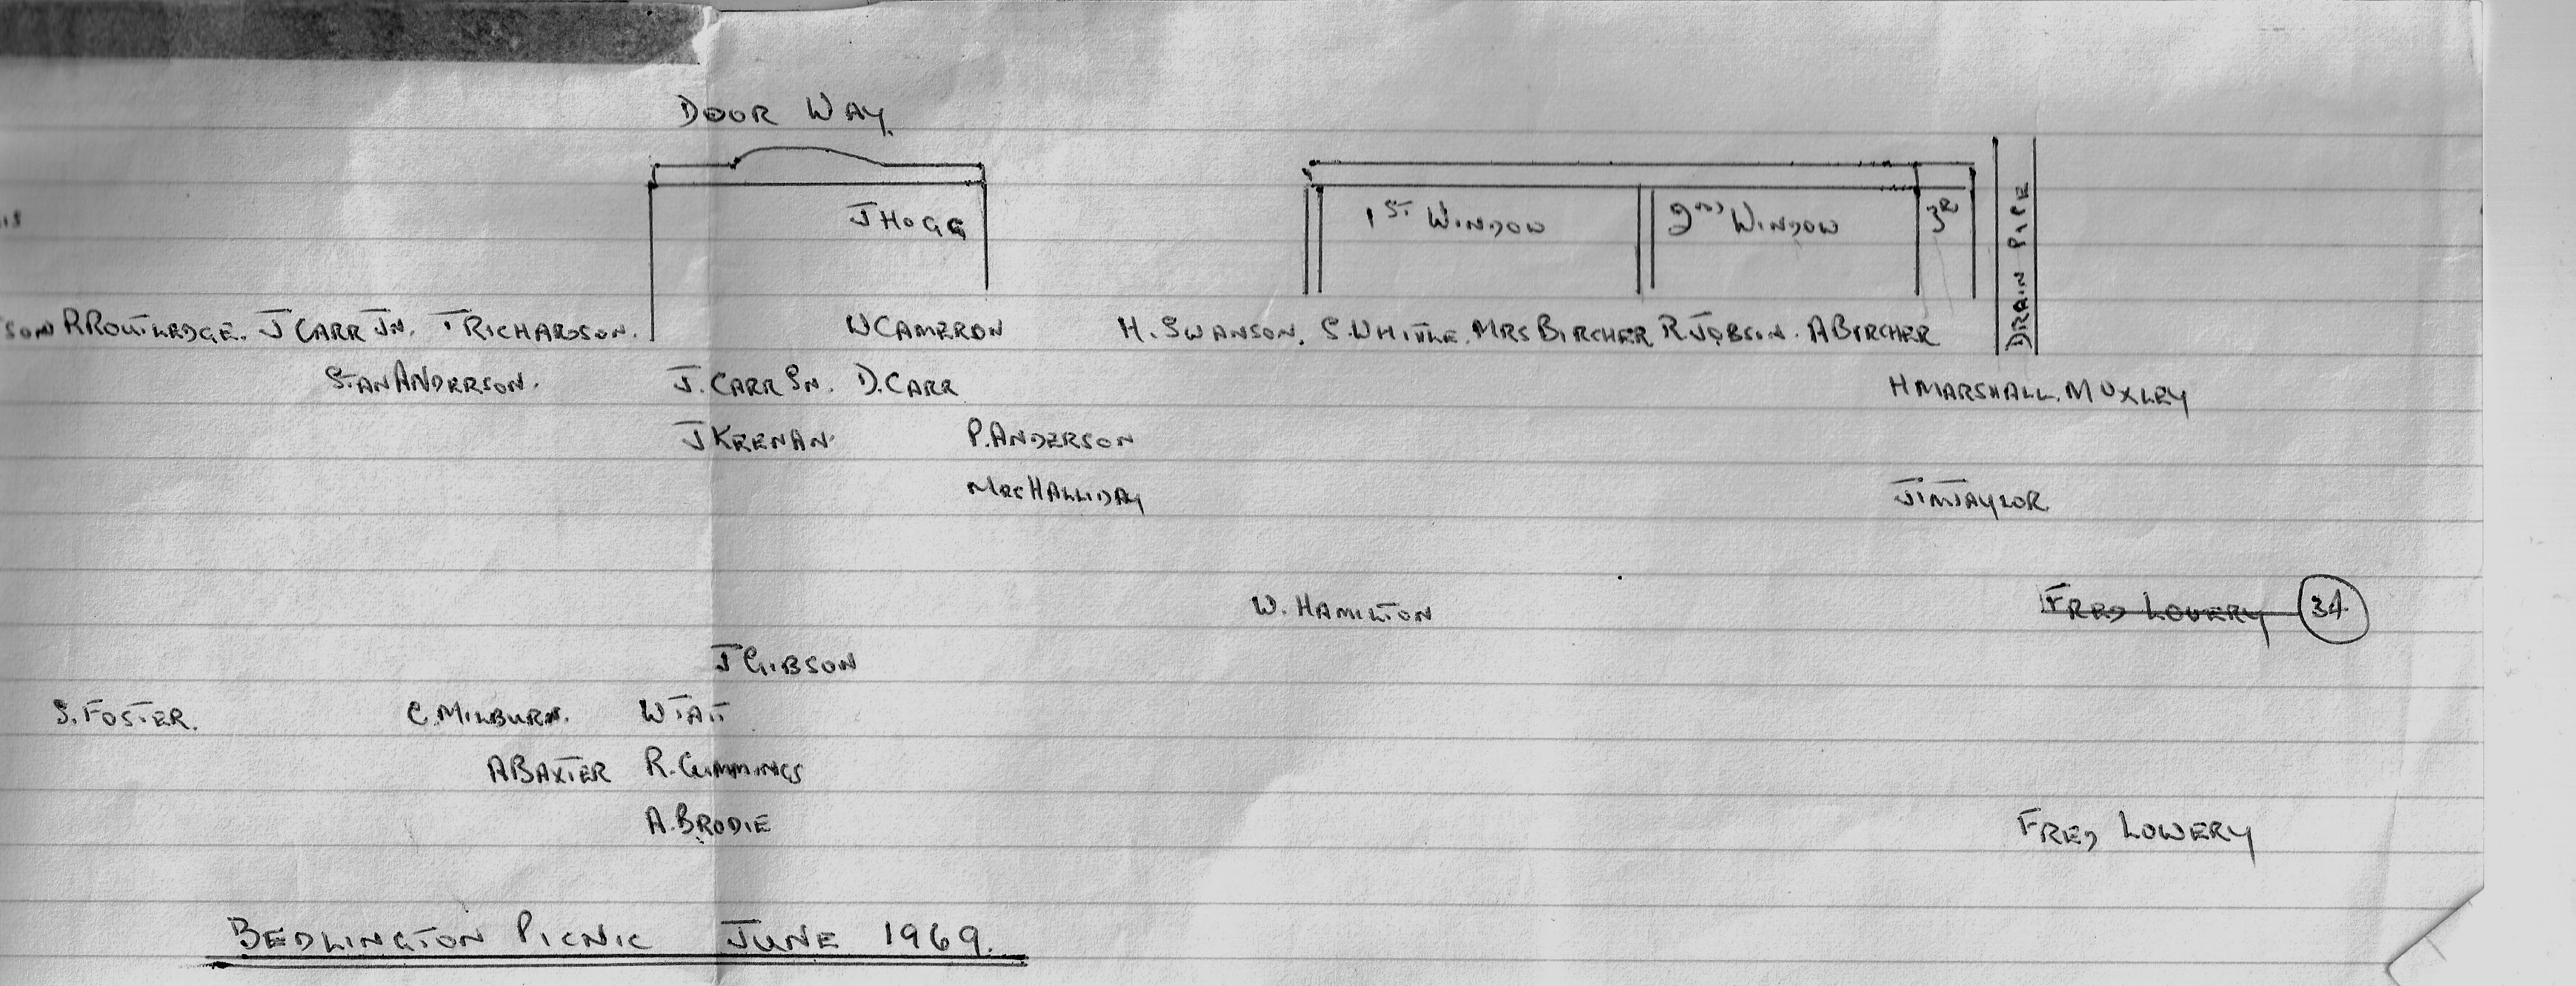 DOOR WAY.
J HOGG 1ST WINDOW 2ND WINDOW 3R DRAIN PIPE
SON R ROUTLEDGE. J CARR JN. T RICHARDSON. W CAMERON H. SWANSON. S. WHITTLE. MRS BIRCHER R JOBSON. A BIRCHER
STAN ANDERSON. J. CARR SN. D. CARR H MARSHALL. M UXLEY
J KEENAN P. ANDERSON
MRS HALLIDAY JIM TAYLOR
W. HAMILTON FRED LOWERY 34
J GIBSON
S. FOSTER. C. MILBURN. W TAIT
A BAXTER R. CUMMINGS
A. BRODIE FRED LOWERY
BEDLINGTON PICNIC JUNE 1969.